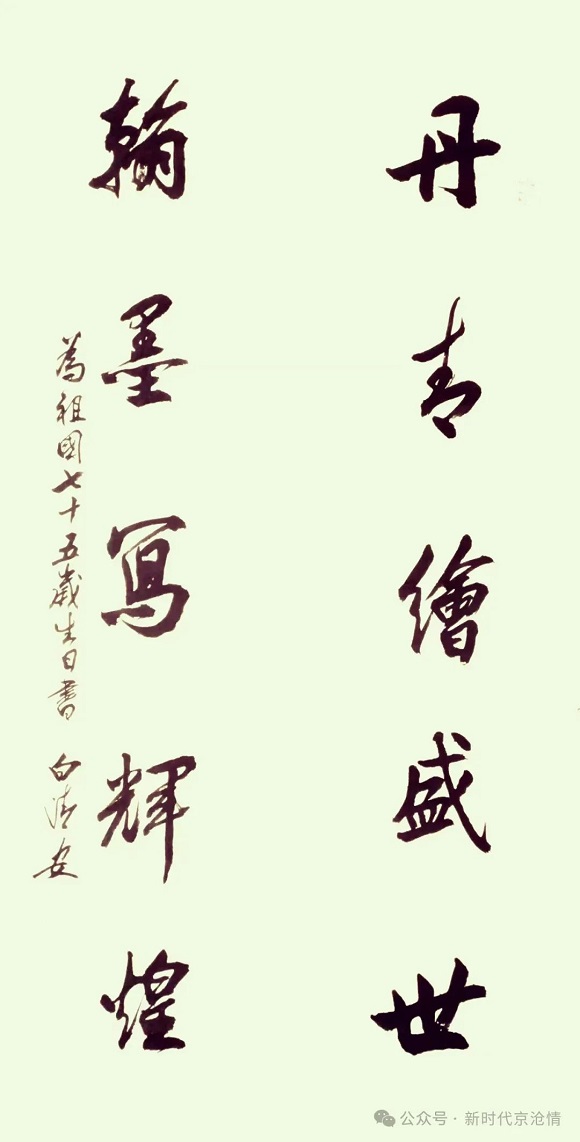 丹青繪盛世
翰墨寫輝煌
為祖國七十五歲生日書 白清安
公众号 · 新时代京沧情